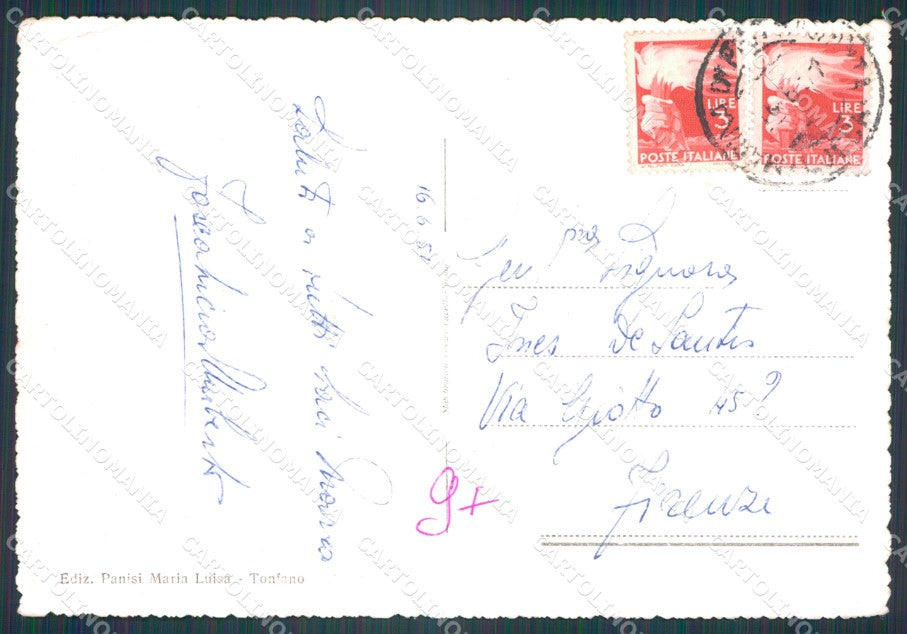 LIRE
3
POSTE ITALIANE
LIRE
3
POSTE ITALIANE
16.6.51
Saluti a tutti baci
Umberto
Gen ma Signora
Ines De Santis
Via Giotto 45
Firenze
9+
Ediz. Panisi Maria Luisa - Tonfano
CARTOLINOMANIA